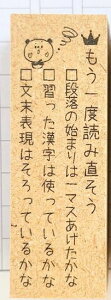 もう一度読み直そう
□段落の始まりは一マスあけたかな
□習った漢字は使っているかな
□文末表現はそろっているかな